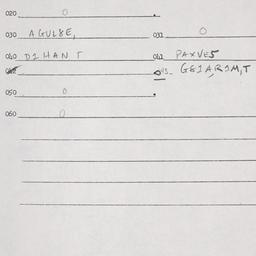 020 0
030 AGUL8E, 031 0
040 D1HANT 041 PAXVES
GE1AR1M,T
050 0
060 0